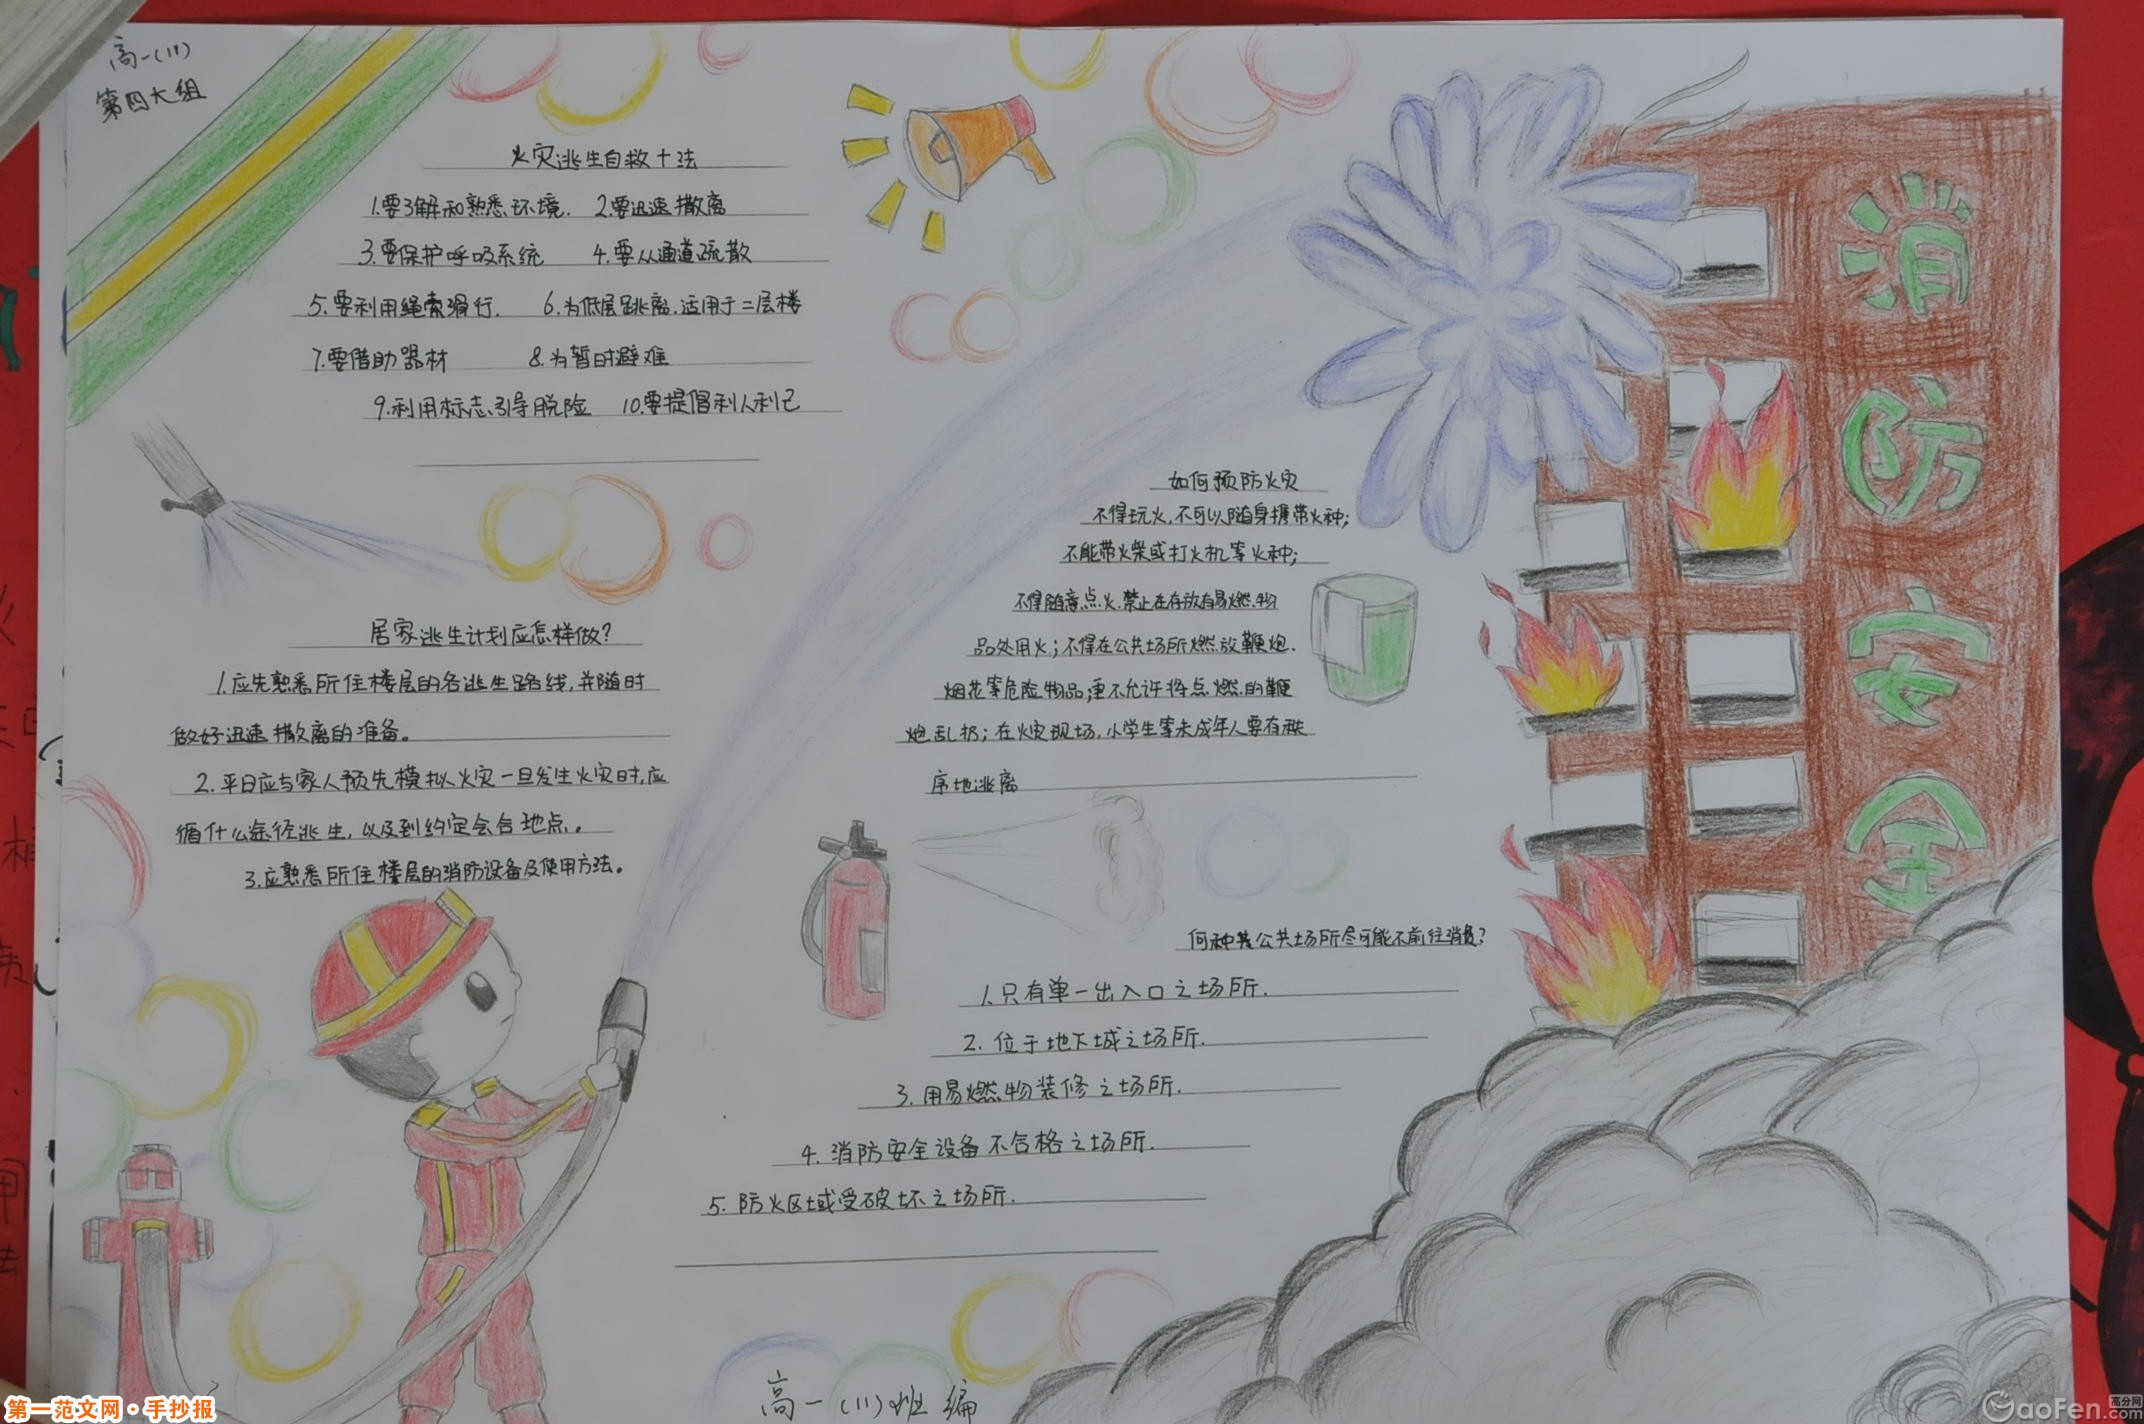 高一(11)
第四大组
火灾逃生自救十法
1.要了解和熟悉环境. 2.要迅速撤离
3.要保护呼吸系统 4.要从通道疏散
5.要利用绳索滑行. 6.为低层跳离.适用于二层楼
7.要借助器材 8.为暂时避难
9.利用标志引导脱险 10.要提倡利人利己
居家逃生计划应怎样做?
1.应先熟悉所住楼层的各逃生路线,并随时
做好迅速撤离的准备。
2.平日应与家人预先模拟火灾一旦发生火灾时,应
循什么途径逃生,以及到约定会合地点。
3.应熟悉所住楼层的消防设备及使用方法。
如何预防火灾
不得玩火,不可以随身携带火种;
不能带火柴或打火机等火种;
不得随意点火.禁止在存放有易燃物
品处用火;不得在公共场所燃放鞭炮.
烟花等危险物品;更不允许将点燃的鞭
炮乱扔;在火灾现场,小学生等未成年人要有秩
序地逃离
何种公共场所尽可能不前往消费?
1.只有单一出入口之场所.
2.位于地下城之场所.
3.用易燃物装修之场所.
4.消防安全设备不合格之场所.
5.防火区域受破坏之场所.
消
防
安
全
高一(11)班编
第一范文网·手抄报
GaoFen.com
高分网